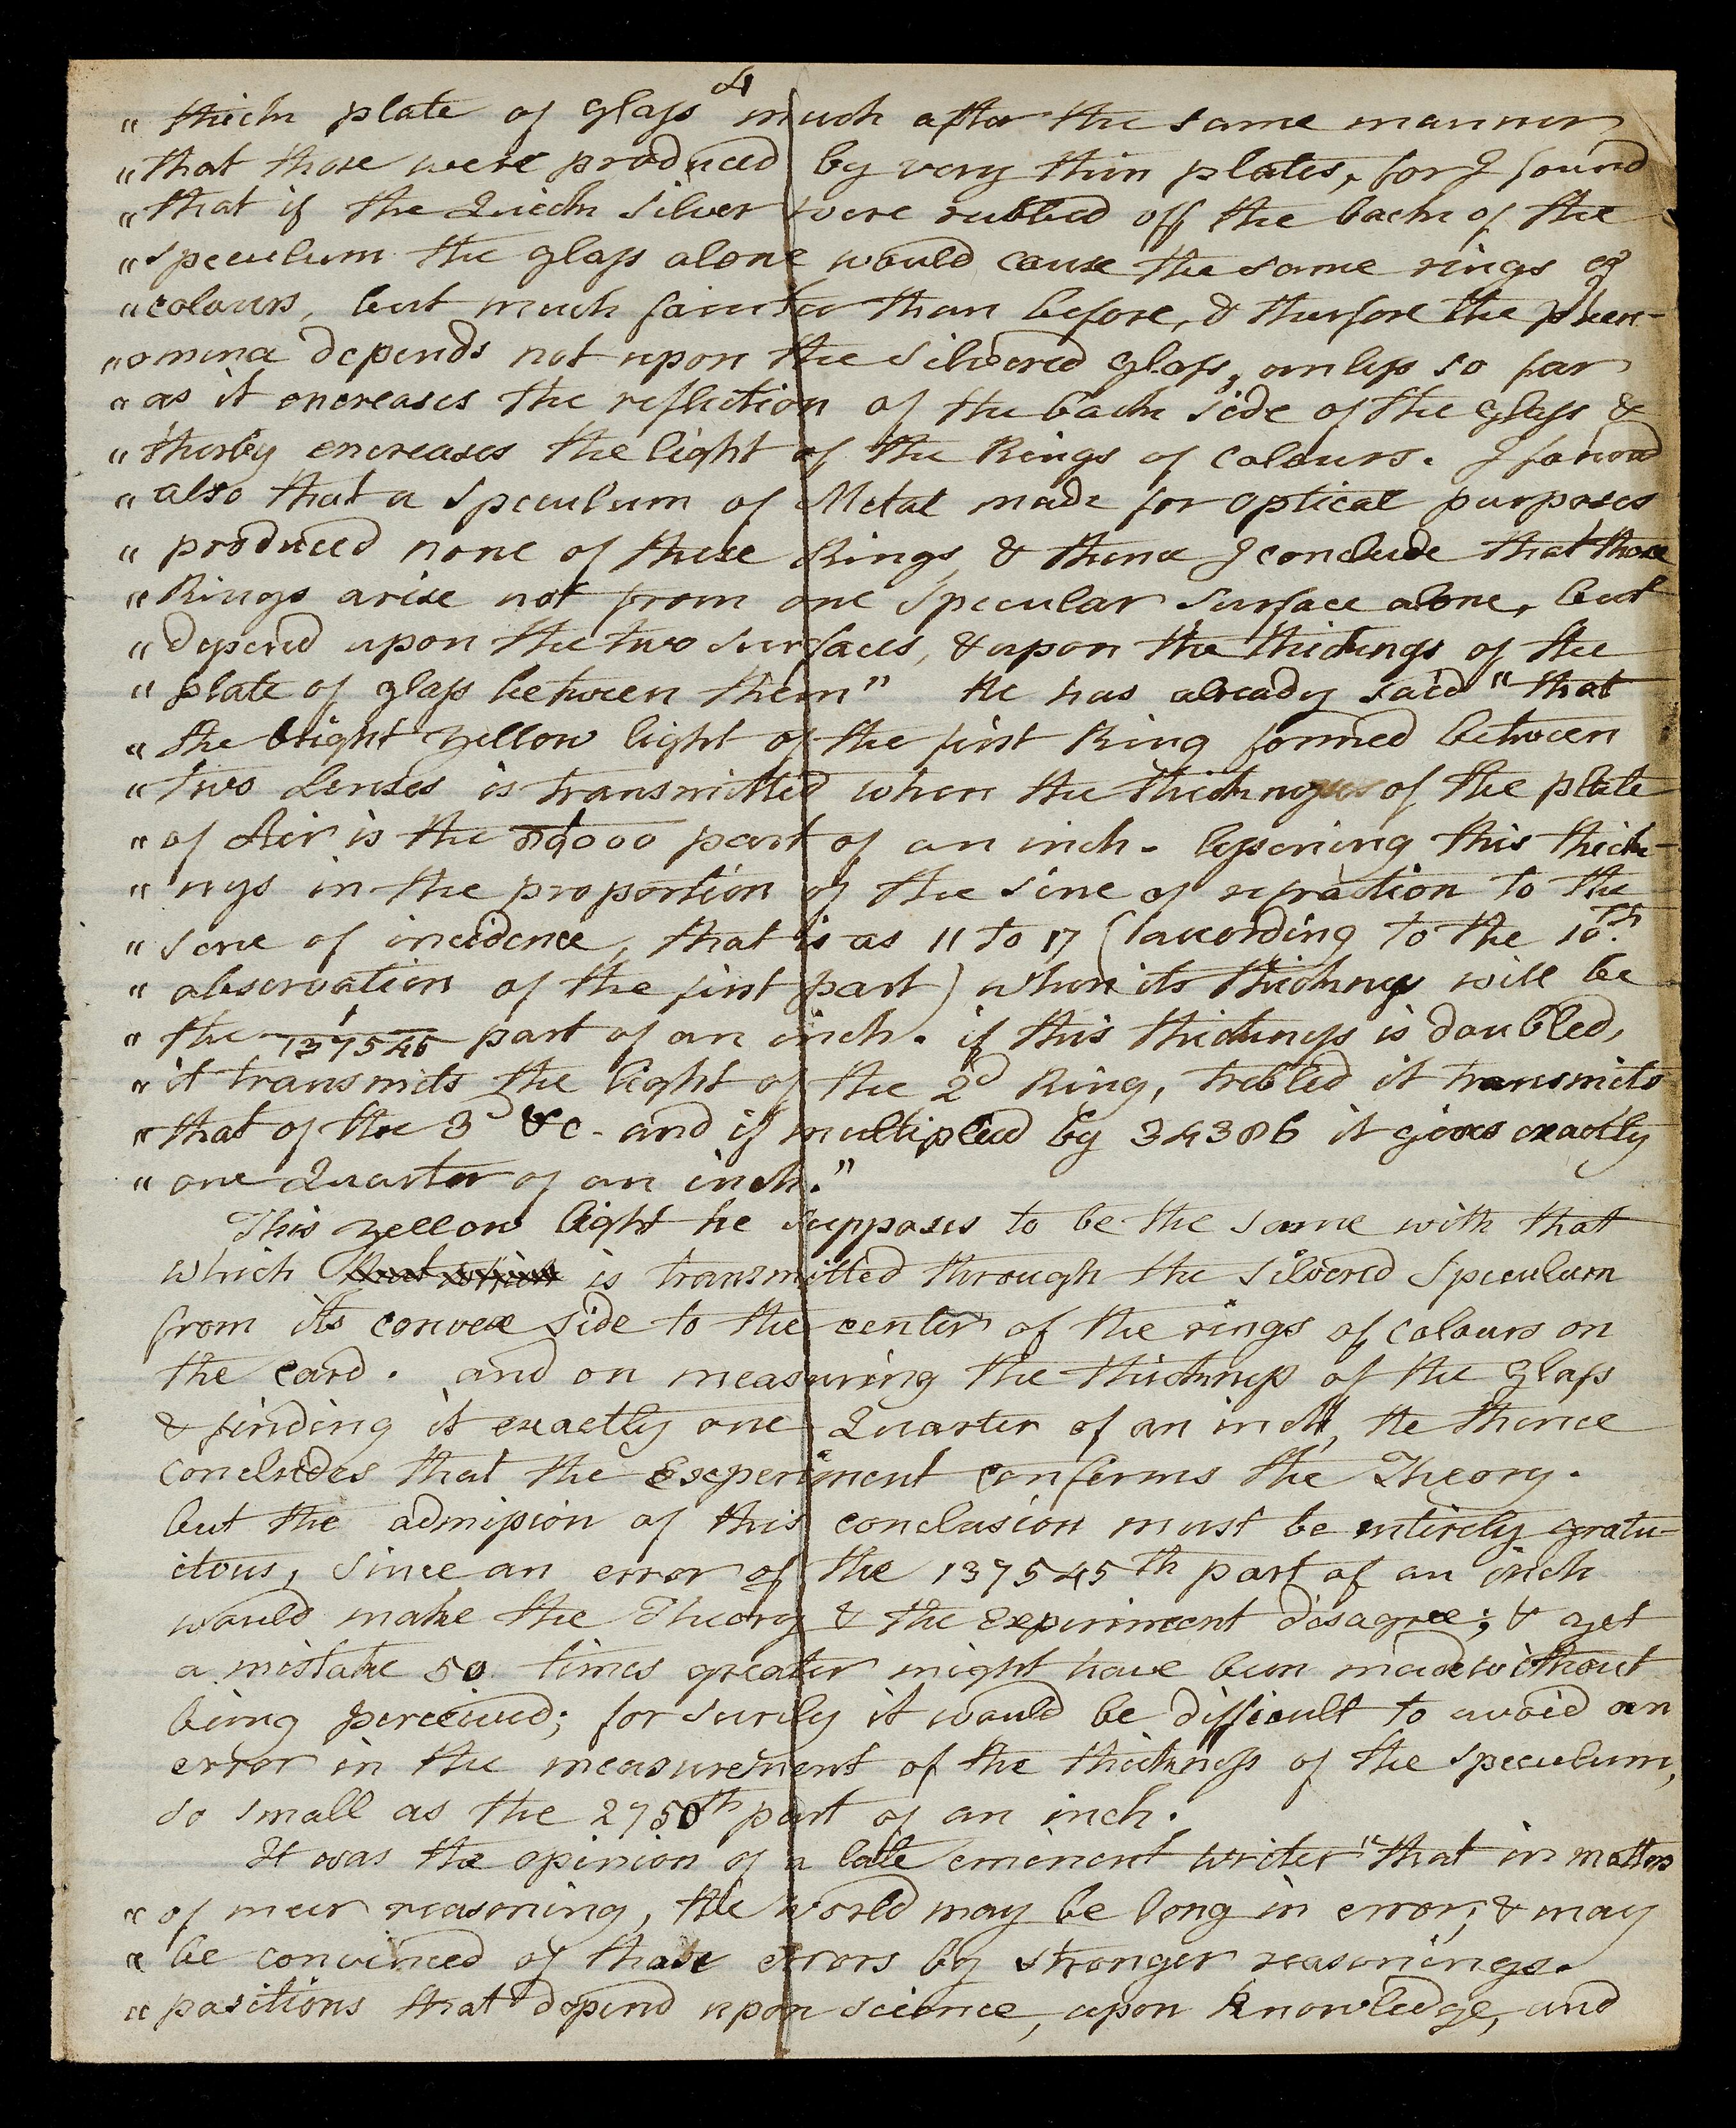 4
" thick plate of glass much after the same manner
" that those were produced by very thin plates, for I found
" that if the Quick silver were rubbed off the back of the
" speculum the glass alone would cause the same rings of
" colours, but much fainter than before, & therfore the phen-
" omina depends not upon the silvered glass, unless so far
" as it encreases the reflection of the back side of the glass &
" therby encreases the light of the Rings of Colours. I found
" also that a speculum of Metal made for optical purposes
" produced none of these Rings, & thence I conclude that those
" Rings arise not from one specular surface alone, but
" depend upon the two surfaces, & upon the thickness of the
" plate of glass between them" He has already said "that
" the bright yellow light of the first Ring formed between
" two Lenses is transmitted when the thickness of the plate
" of Air is the 89000 part of an inch. lessening this thick-
" ness in the proportion of the sine of refraction to the
" sine of incidence, that is as 11 to 17 (according to the 10th
" observation of the first part) when its thickness will be
" the 1/137545 part of an inch. if this thickness is doubled,
" it transmits the light of the 2d Ring, trebled it transmits
" that of the 3d &c. and if multiplied by 34386 it gives exactly
" one Quarter of an inch."
This yellow light he supposes to be the same with that
which is transmitted through the silvered Speculum
from its convex side to the center of the rings of colours on
the card. and on measuring the thickness of the glass
& finding it exactly one Quarter of an inch, He thence
concludes that the Experiment confirms the Theory.
but the admission of this conclusion must be entirely gratu-
itous, since an error of the 137545th part of an inch
would make the Theory & the Experiment disagree; & yet
a mistake 50 times greater might have been made without
being perceived; for surely it would be difficult to avoid an
error in the measurement of the thickness of the speculum,
so small as the 2750th part of an inch.
It was the opinion of a late eminent writer "that in matters
" of meer reasoning, the world may be long in error, & may
" be convinced of those errors by stronger reasonings.
" positions that depend upon science, upon knowledge, and